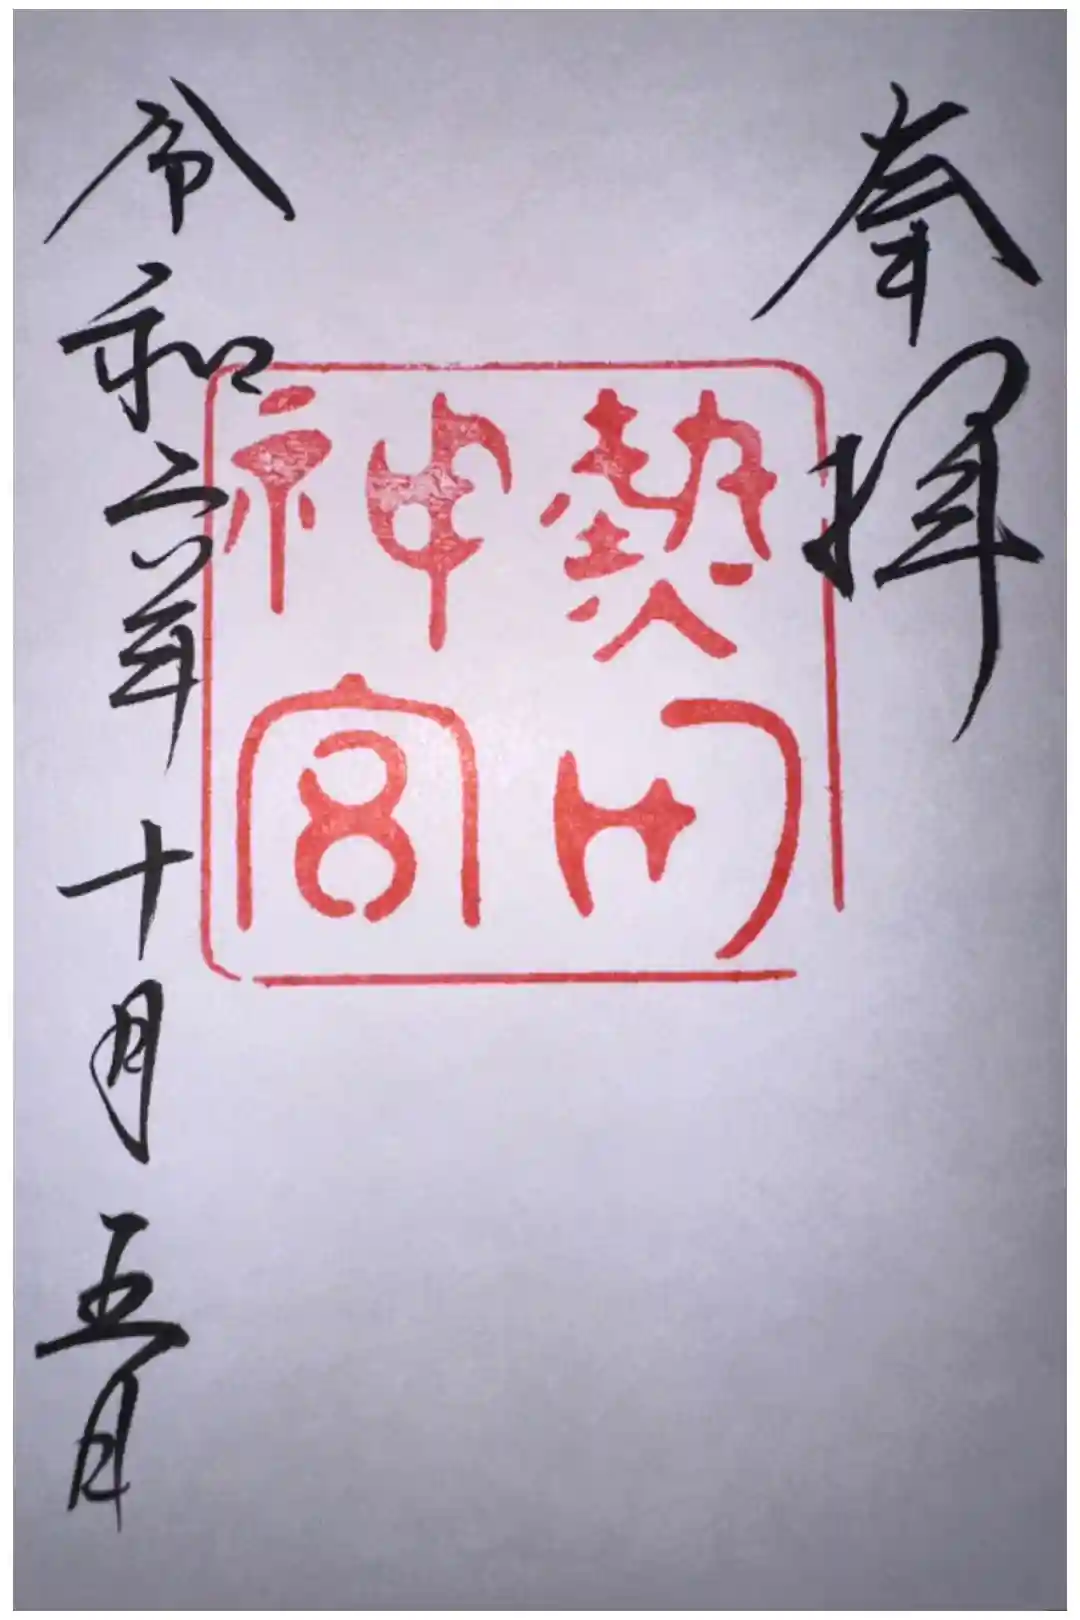 奉拝
熱田
神宮
令和二年十月五日